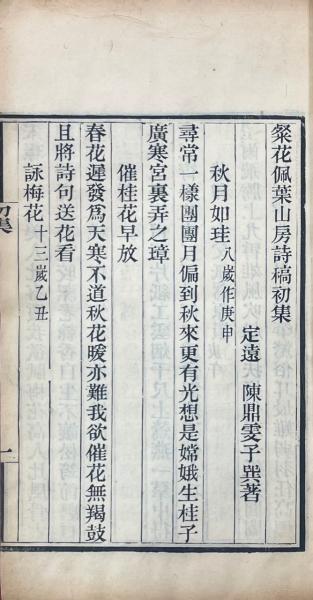 粲花佩葉山房詩稿初集
定遠 陳鼎雯子巽著
秋月如珪 八歲作庚申
尋常一樣團團月偏到秋來更有光想是嫦娥生桂子
廣寒宮裏弄之璋
催桂花早放
春花遲發爲天寒不道秋花暖亦難我欲催花無羯鼓
且將詩句送花看
詠梅花 十三歲乙丑
初集
一